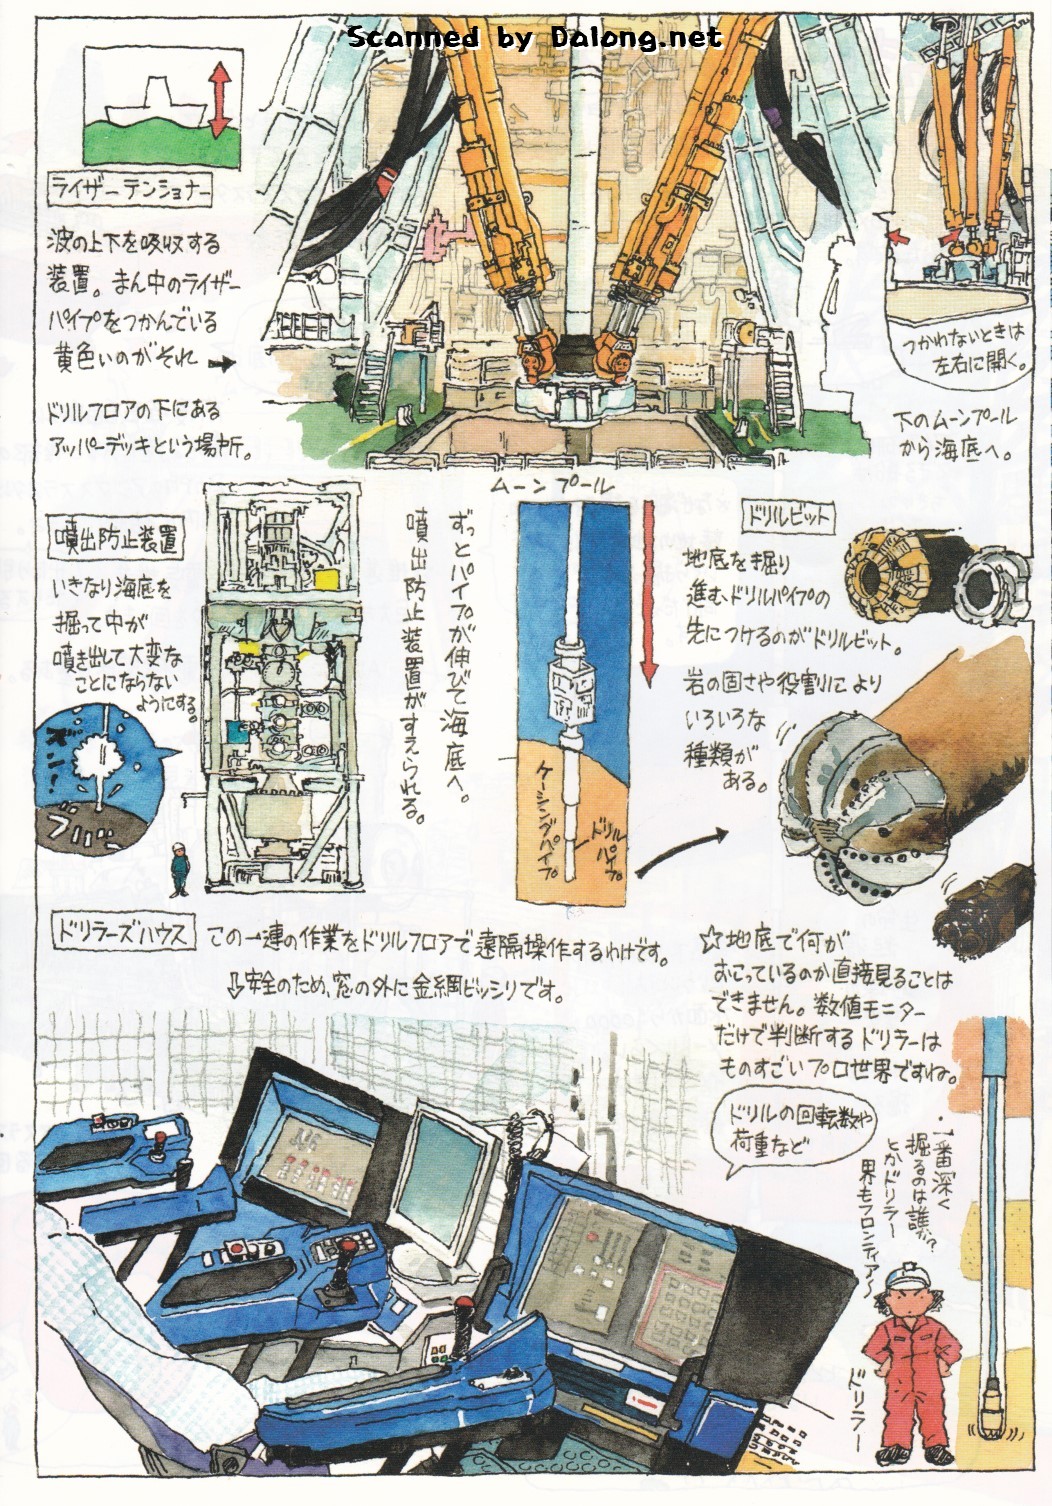 Scanned by Dalong.net
ライザーテンショナー
波の上下を吸収する
装置。まん中のライザー
パイプをつかんでいる
黄色いのがそれ
ドリルフロアの下にある
アッパーデッキという場所。
つかわないときは
左右に開く。
下のムーンプール
から海底へ。
ムーンプール
噴出防止装置
いきなり海底を
掘って中が
噴き出して大変な
ことにならない
ようにする。
ズン!
ブハ
ずっとパイプが伸びて海底へ。
噴出防止装置がすえられる。
ケーシングパイプ
ドリルパイプ
ドリルビット
地底を掘り
進むドリルパイプの
先につけるのがドリルビット。
岩の固さや役割により
いろいろな
種類が
ある。
ドリラーズハウス
この一連の作業をドリルフロアで遠隔操作するわけです。
安全のため、窓の外に金網ビッシリです。
☆地底で何が
おこっているのか直接見ることは
できません。数値モニター
だけで判断するドリラーは
ものすごいプロ世界ですね。
ドリルの回転数や
荷重など
一番深く
掘るのは誰!?
とかドリラー
界もフロンティア〜
ドリラー